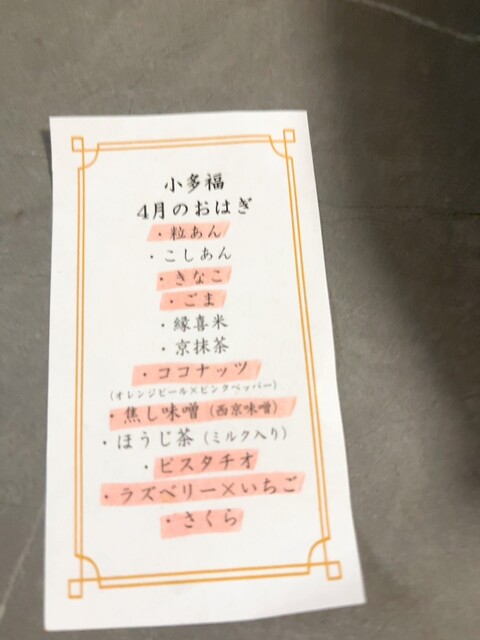 小多福
4月のおはぎ
・粒あん
・こしあん
・きなこ
・ごま
・縁喜米
・京抹茶
・ココナッツ
(オレンジピール×ピンクペッパー)
・焦し味噌（西京味噌）
・ほうじ茶（ミルク入り）
・ピスタチオ
・ラズベリー×いちご
・さくら